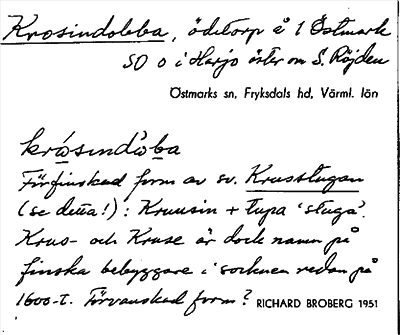 Krosindobba, ödetorp å 1 Östmark
SO o i Harjo öster om S. Röjden
Östmarks sn, Fryksdals hd, Värml. län
krósindòba
Förfinskad form av sv. Krusstugan
(se detta!): Kruusin + tupa 'stuga'.
Krus- och Kruse är dock namn på
finska bebyggare i socknen redan på
1600-t. Förvanskad form? RICHARD BROBERG 1951